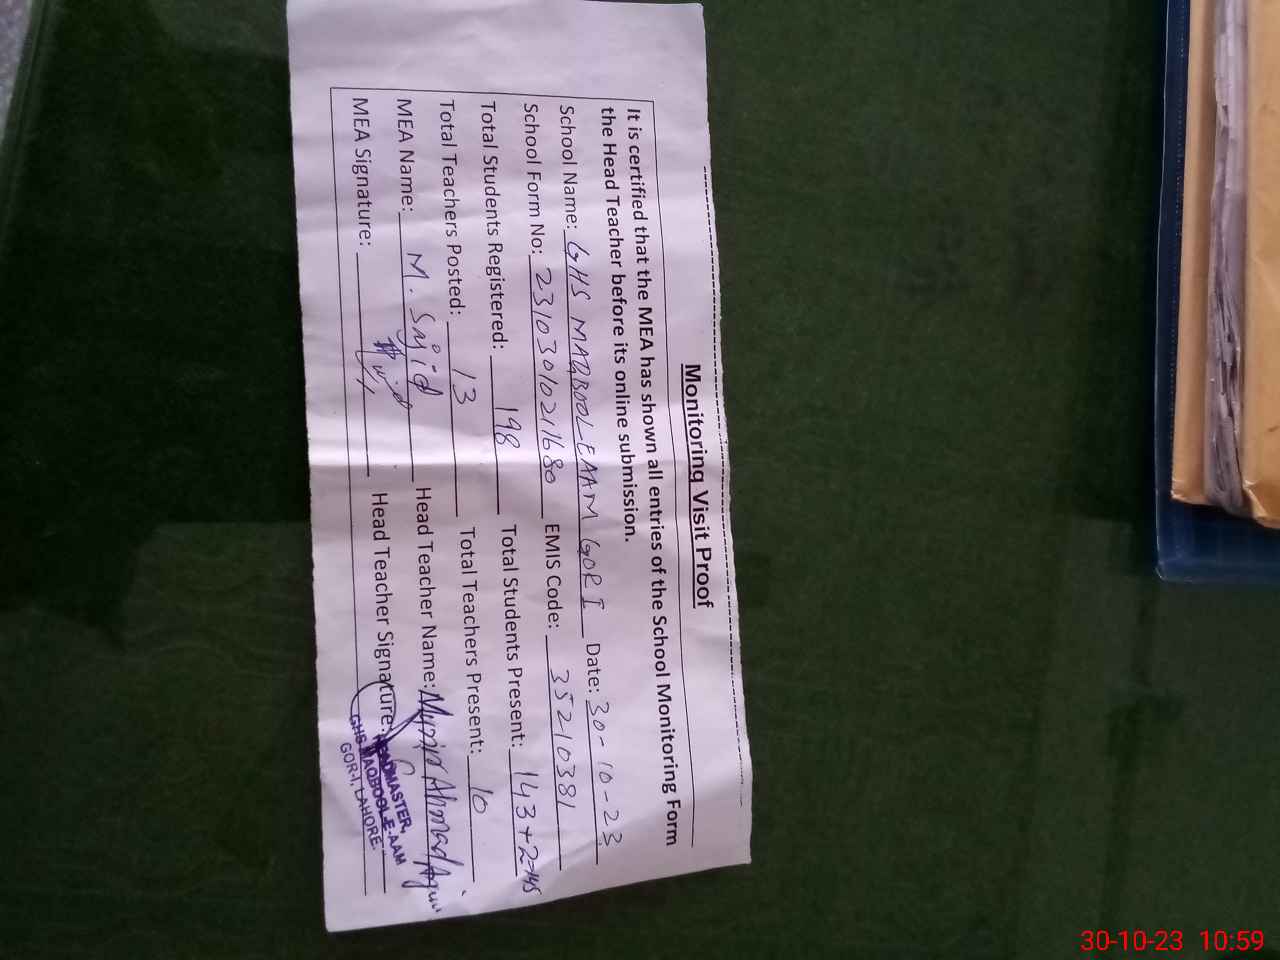 Monitoring Visit Proof
It is certified that the MEA has shown all entries of the School Monitoring Form
the Head Teacher before its online submission.
School Name: GHS MAQBOOL-E-AAM GOR I Date: 30-10-23
School Form No: 23103010211680 EMIS Code: 35210381
Total Students Registered: 198 Total Students Present: 143+2=145
Total Teachers Posted: 13 Total Teachers Present: 10
MEA Name: M. Sajid Head Teacher Name: Ahmad
MEA Signature: Head Teacher Signature:
HEADMASTER,
GHS MAQBOOL-E-AAM
GOR-I, LAHORE.
30-10-23 10:59